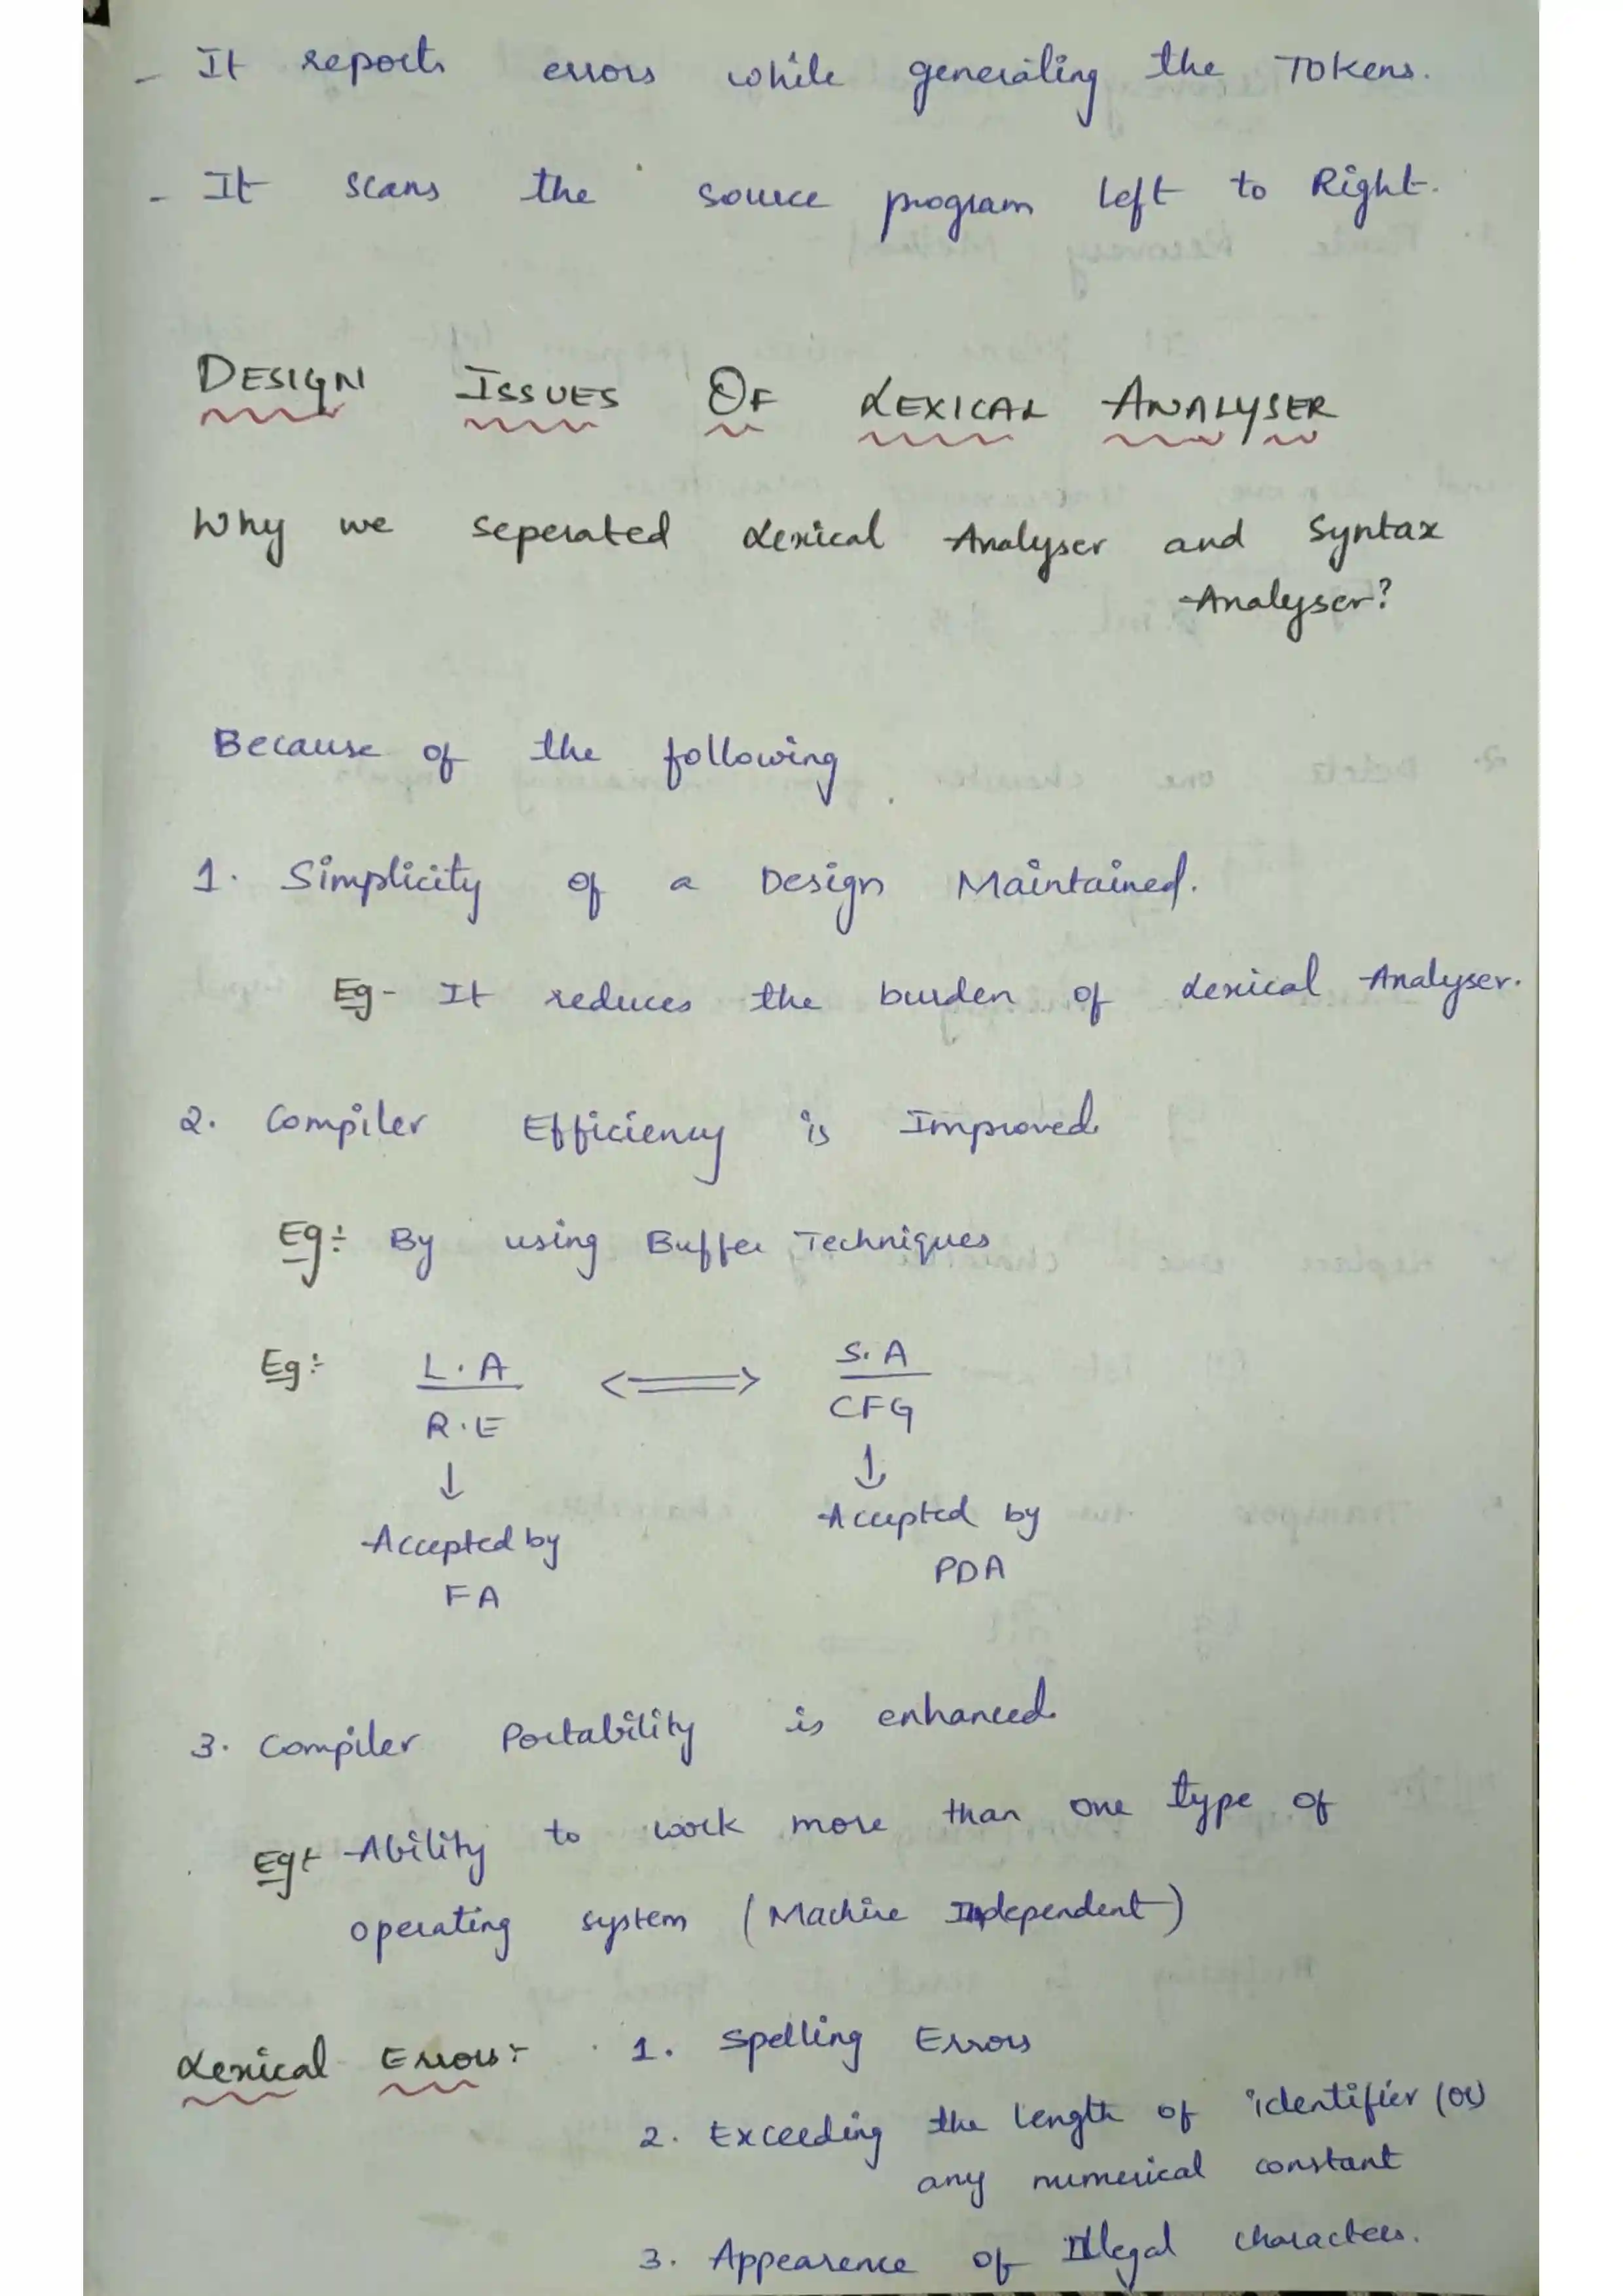 - It reports errors while generating the Tokens.
- It scans the source program left to Right.
DESIGN ISSUES OF LEXICAL ANALYSER
Why we seperated Lexical Analyser and Syntax
Analyser?
Because of the following
1. Simplicity of a Design Maintained.
Eg- It reduces the burden of Lexical Analyser.
2. Compiler Efficiency is Improved
Eg:- By using Buffer Techniques
Eg:- L.A <=> S.A
R.E CFG
↓ ↓
Accepted by Accepted by
FA PDA
3. Compiler Portability is enhanced
Eg:- Ability to work more than one type of
operating system (Machine Independent)
Lexical Errors:- 1. Spelling Errors
2. Exceeding the length of identifier (or)
any numerical constant
3. Appearence of Illegal characters.